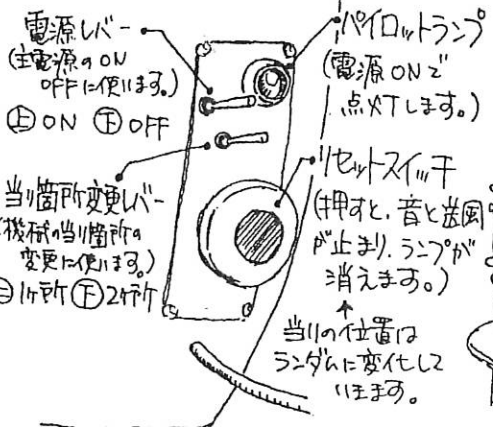 電源レバー
(主電源のON
OFFに使います。)
上ON 下OFF
当り箇所変更レバー
(機械の当り箇所の
変更に使います。)
上1ヶ所 下2ヶ所
パイロットランプ
(電源ONで
点灯します。)
リセットスイッチ
(押すと、音と送風
が止まり、ランプが
消えます。)
当りの位置は
ランダムに変化して
いきます。